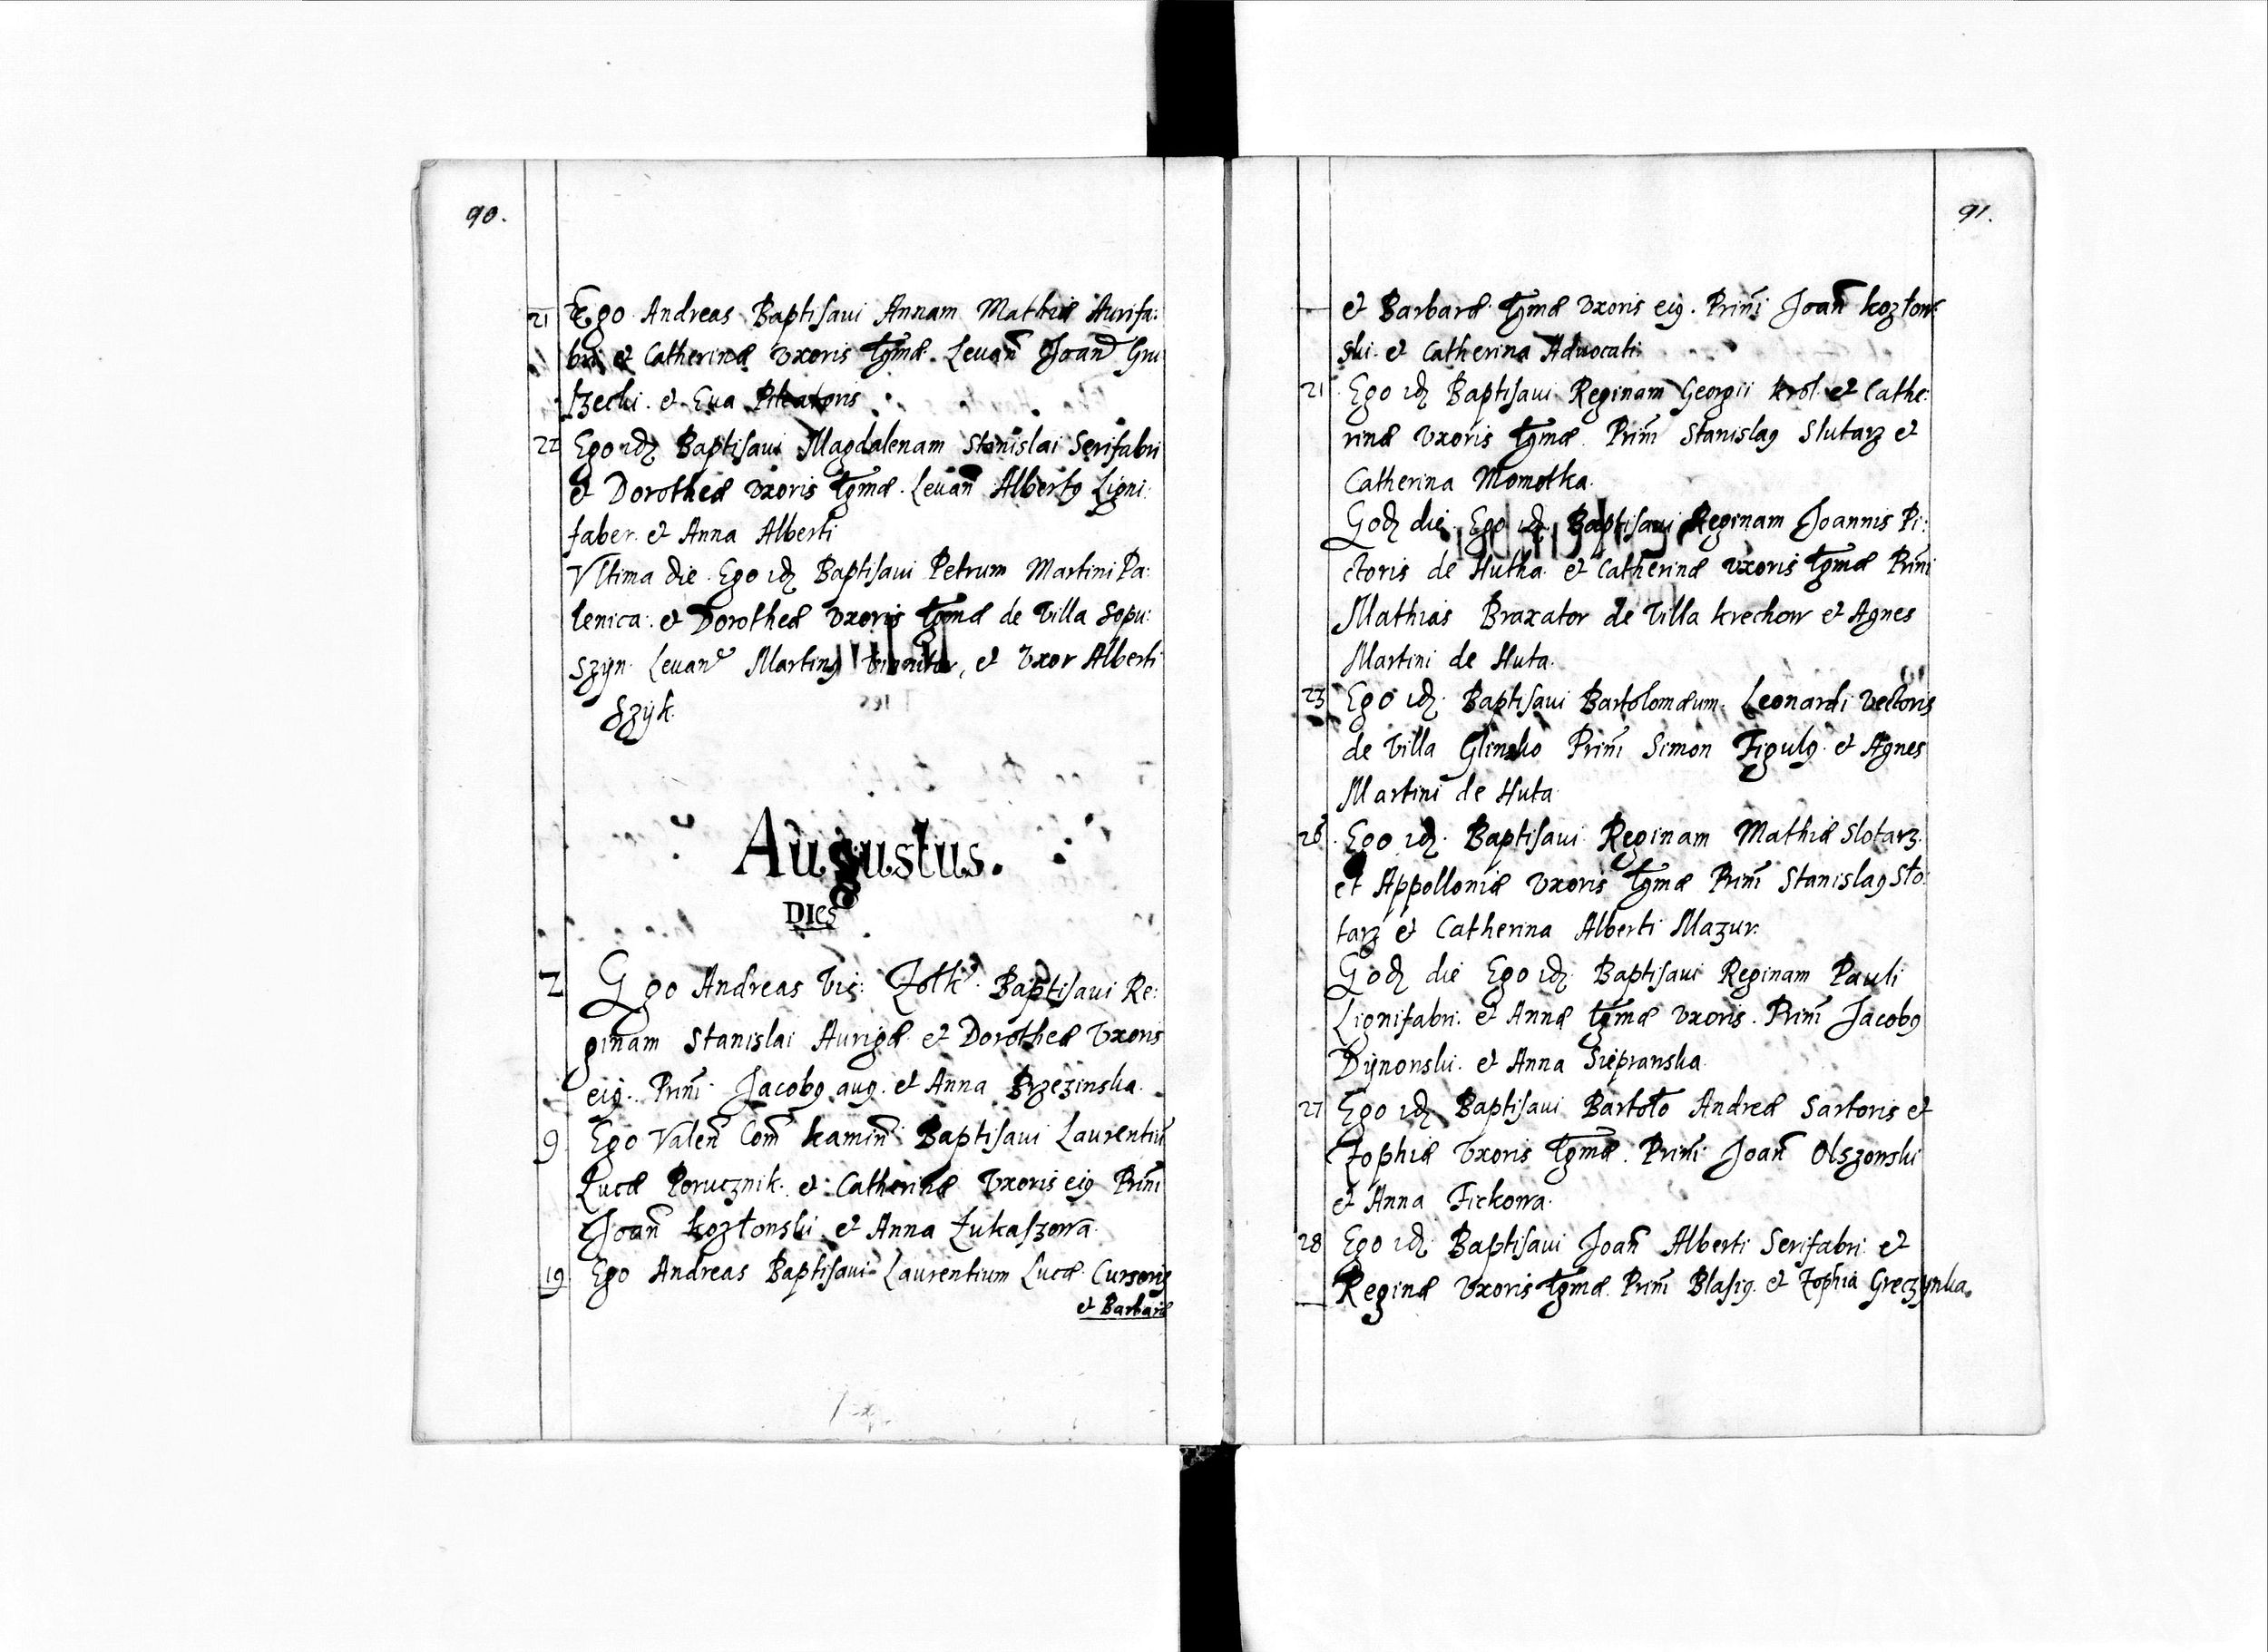 90.
21 Ego Andreas Baptisaui Annam Mathiæ Aurifa:
bri et Catherinæ Vxoris lgmæ. Leuan̄ Joan̄ Gru
szecki. et Eua
22 Ego idꝫ Baptisaui Magdalenam Stanislai Serifabri
et Dorotheæ Vxoris lgmæ. Leuan̄ Albertꝰ Ligni:
faber. et Anna Alberti
Vltima die. Ego idꝫ Baptisaui Petrum Martini Pa:
lenica. et Dorotheæ Vxoris lgmæ de Villa Sopu:
szyn. Leuan̄ Martinꝰ et Vxor Alberti
Szyk.
Augustus.
DIes
2 Ego Andreas Vic: Zolk. Baptisaui Re:
ginam Stanislai Aurigæ et Dorotheæ Vxoris
eiꝰ. Prim̄ Jacobꝰ aug. et Anna Brzezinska.
9 Ego Valen̄ Com̄ kamin̄ Baptisaui Laurentiū
Lucæ Porucznik. et Catherinæ Vxoris eiꝰ Prim̄
Joan̄ kozłonski et Anna Łukaszowa.
19 Ego Andreas Baptisaui Laurentium Lucæ Cursoris
et Barbaræ
91.
et Barbaræ lgmæ Vxoris eiꝰ. Prim̄ Joan̄ kozłow:
ski. et Catherina Aduocati
21 Ego idꝫ Baptisaui Reginam Georgii krol. et Cathe:
rinæ Vxoris lgmæ Prim̄ Stanislaꝰ Slutarz et
Catherina Momotka.
Eodꝫ die. Ego idꝫ Baptisaui Reginam Joannis Pi:
ctoris de Hutha. et Catherinæ Vxoris lgmæ Prim̄
Mathias Braxator de Villa krechow et Agnes
Martini de Huta.
23 Ego idꝫ Baptisaui Bartolomæum. Leonardi Vectoris
de Villa Glinsko Prim̄ Simon Figulꝰ et Agnes
Martini de Huta
26 Ego idꝫ. Baptisaui Reginam Mathiæ Slotarz.
et Appolloniæ Vxoris lgmæ Prim̄ Stanislaꝰ Sto:
tarz et Catherina Alberti Mazur.
Eodꝫ die Ego idꝫ Baptisaui Reginam Pauli
Lignifabri. et Annæ lgmæ Vxoris. Prim̄ Jacobꝰ
Dynonski. et Anna Siepranska.
27 Ego idꝫ Baptisaui Bartoło Andreæ Sartoris et
Zophiæ Vxoris lgmæ. Prim̄ Joan̄ Olszonski
et Anna Fickowa.
28 Ego idꝫ Baptisaui Joan̄ Alberti Serifabri et
Reginæ Vxoris lgmæ. Prim̄ Blasiꝰ. et Zophia Greczynka.